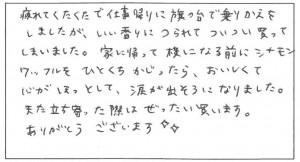 疲れてくたくたで仕事帰りに旗の台で乗りかえを
しましたが、いい香りにつられてついつい買って
しまいました。家に帰って横になる前にシナモン
ワッフルをひとくちかじったら、おいしくて
心がほっとして、涙が出そうになりました。
また立ち寄った際はぜったい買います。
ありがとうございます✧✧